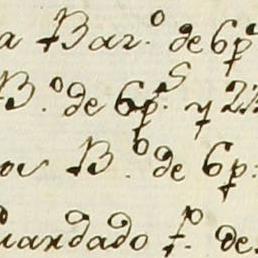 a Bar.º de 6p
B.º de 6p.s y 2
B.º de 6p.
uandado f.º de